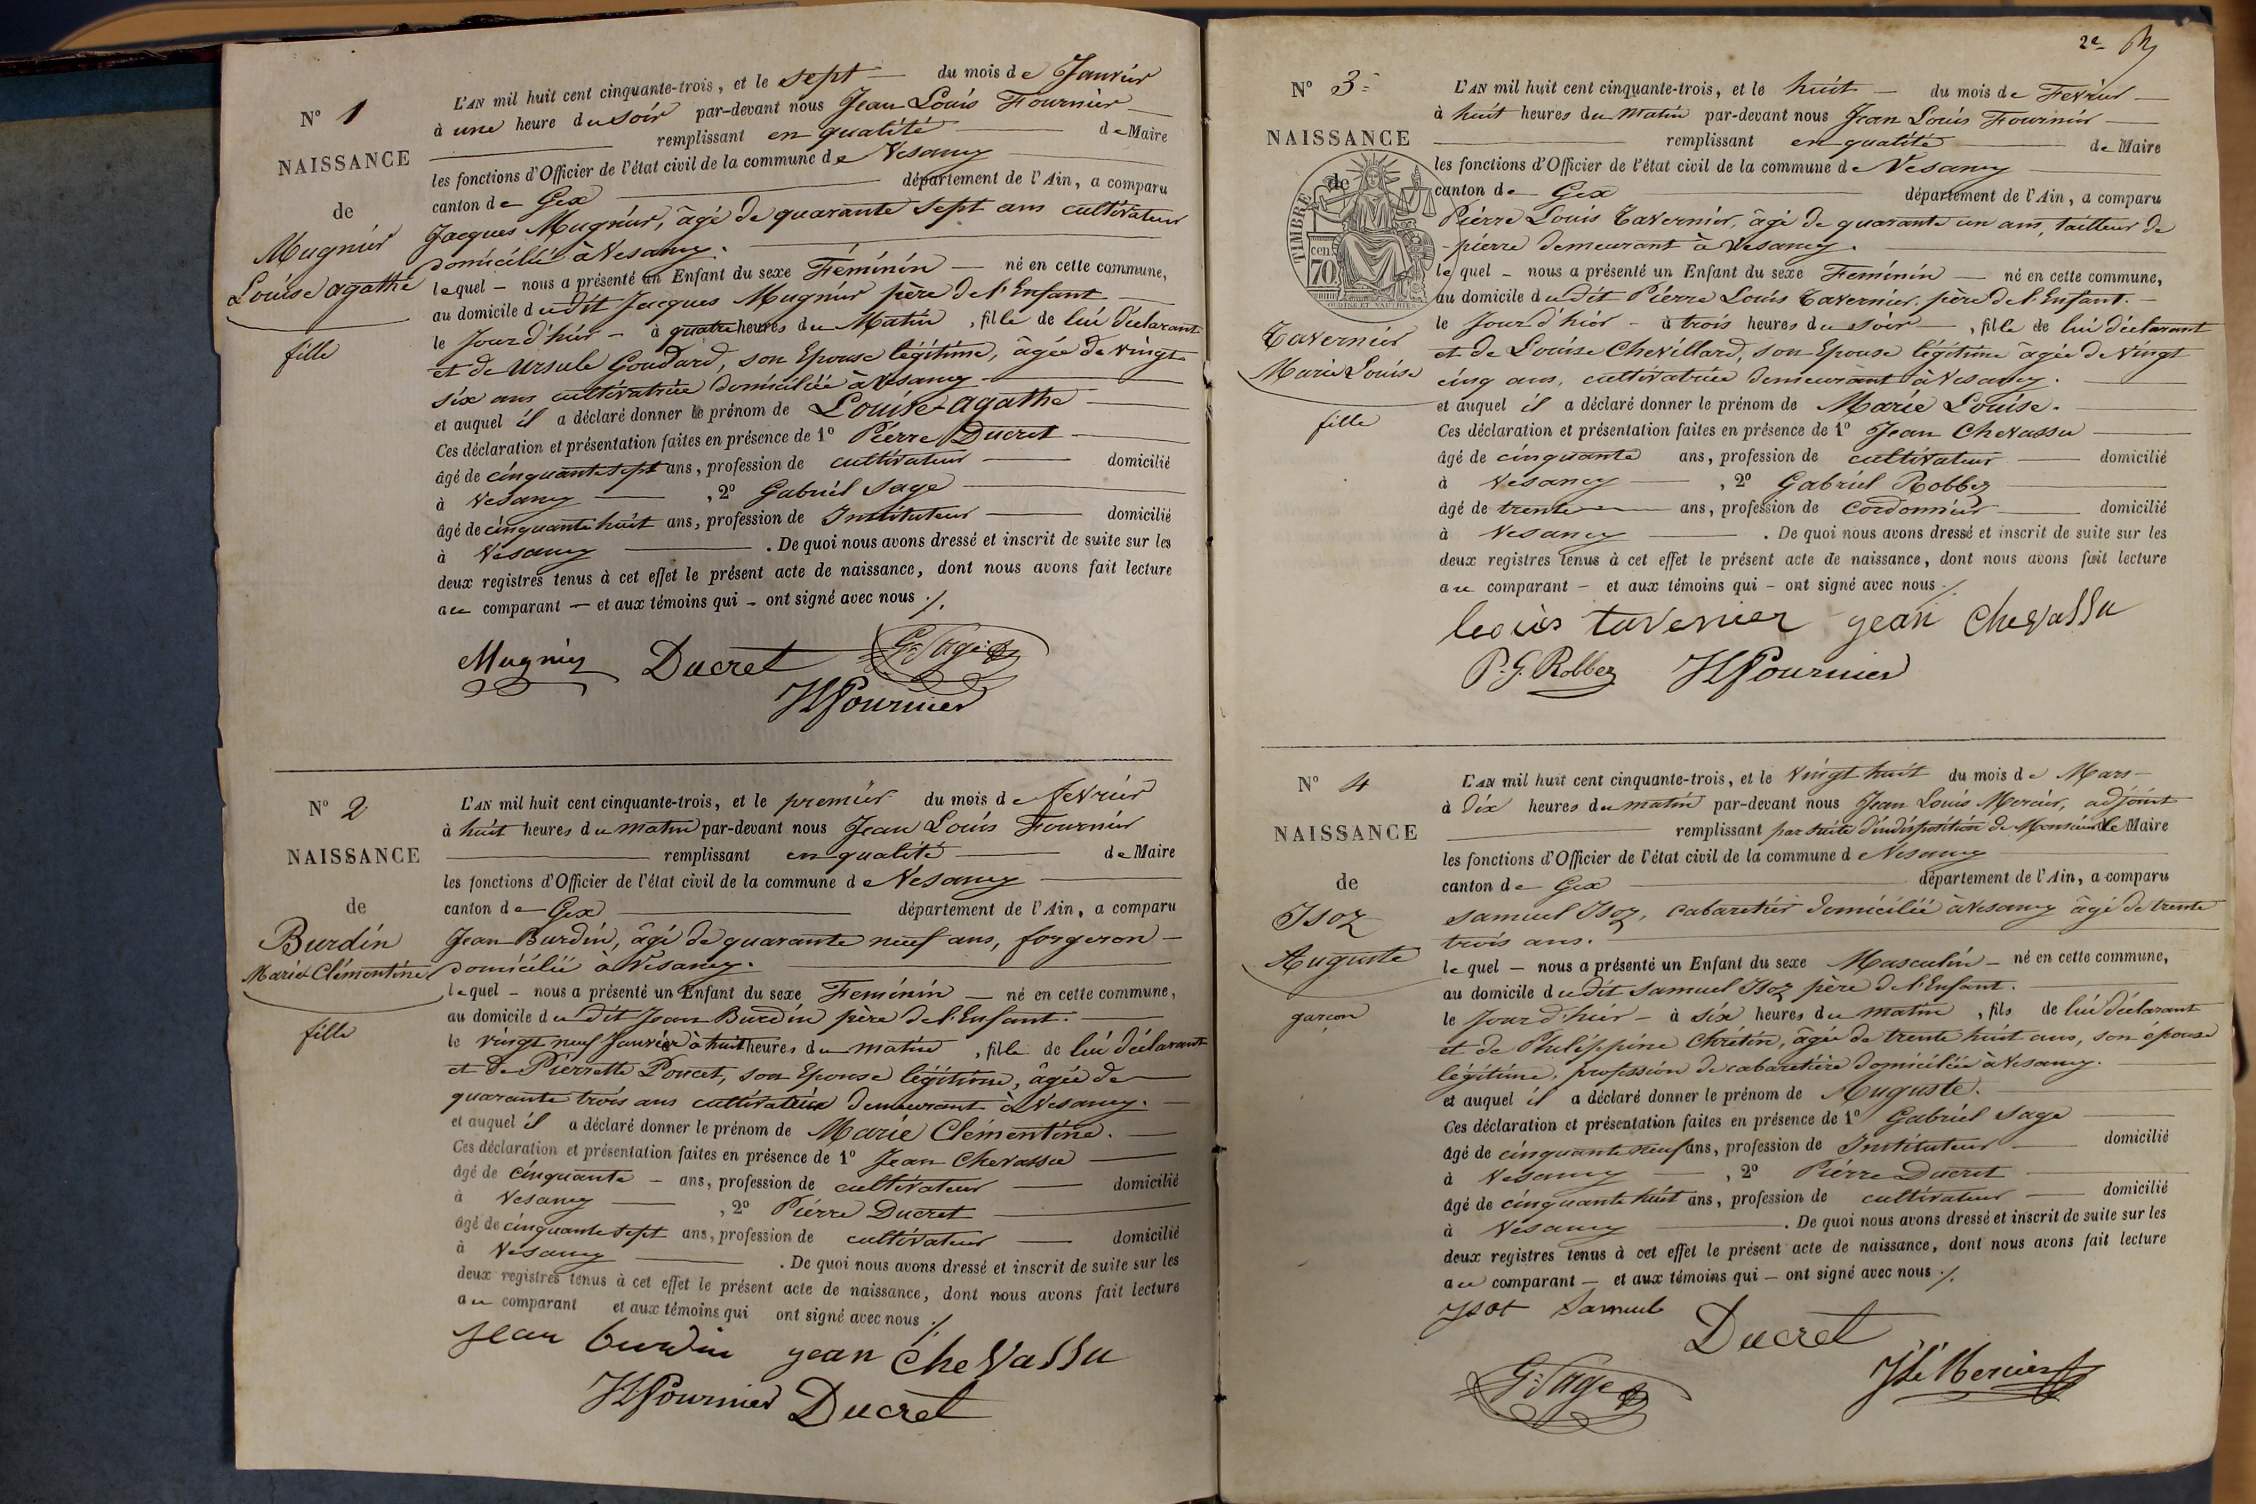 N° 1
NAISSANCE
de
Mugnier
Louise agathe
fille
L'AN mil huit cent cinquante-trois, et le sept du mois de Janvier
à une heure du soir par-devant nous Jean Louis Fournier
remplissant en qualité de Maire
les fonctions d'Officier de l'état civil de la commune de Vesancy
canton de Gex département de l'Ain, a comparu
Jacques Mugnier, âgé de quarante sept ans cultivateur
domicilié à Vesancy.
lequel – nous a présenté un Enfant du sexe Féminin – né en cette commune,
au domicile dudit Jacques Mugnier père de l'Enfant
le Jour d'hier – à quatre heures du Matin, fille de lui déclarant
et de Ursule Goudard, son Epouse légitime, âgée de vingt
six ans cultivatrice domiciliée à Vesancy
et auquel il a déclaré donner le prénom de Louise agathe
Ces déclaration et présentation faites en présence de 1° Pierre Ducret
âgé de cinquante sept ans, profession de cultivateur domicilié
à Vesancy, 2° Gabriel Sage
âgé de cinquante huit ans, profession de Instituteur domicilié
à Vesancy. De quoi nous avons dressé et inscrit de suite sur les
deux registres tenus à cet effet le présent acte de naissance, dont nous avons fait lecture
au comparant – et aux témoins qui – ont signé avec nous ./.
Mugnier Ducret G. Sage
JLFournier
N° 2
NAISSANCE
de
Burdin
Marie Clémentine
fille
L'AN mil huit cent cinquante-trois, et le premier du mois de février
à huit heures du matin par-devant nous Jean Louis Fournier
remplissant en qualité de Maire
les fonctions d'Officier de l'état civil de la commune de Vesancy
canton de Gex département de l'Ain, a comparu
Jean Burdin, âgé de quarante neuf ans, forgeron –
domicilié à Vesancy.
lequel – nous a présenté un Enfant du sexe Feminin – né en cette commune,
au domicile dudit Jean Burdin père de l'Enfant.
le vingt neuf Janvier à huit heures du matin, fille de lui déclarant
et de Pierrette Poncet, son Epouse légitime, âgée de
quarante trois ans cultivatrice demeurant à Vesancy.
et auquel il a déclaré donner le prénom de Marie Clémentine.
Ces déclaration et présentation faites en présence de 1° Jean Chevassu
âgé de cinquante – ans, profession de cultivateur domicilié
à Vesancy, 2° Pierre Ducret
âgé de cinquante sept ans, profession de cultivateur domicilié
à Vesancy. De quoi nous avons dressé et inscrit de suite sur les
deux registres tenus à cet effet le présent acte de naissance, dont nous avons fait lecture
au comparant et aux témoins qui ont signé avec nous ./.
jean burdin jean chevassu
JLFournier Ducret
2e
N° 3
NAISSANCE
de
TIMBRE
cen
70
Tavernier
Marie Louise
fille
L'AN mil huit cent cinquante-trois, et le huit – du mois de Février
à huit heures du matin par-devant nous Jean Louis Fournier
remplissant en qualité de Maire
les fonctions d'Officier de l'état civil de la commune de Vesancy
canton de Gex département de l'Ain, a comparu
Pierre Louis Tavernier, âgé de quarante un ans, tailleur de
pierre demeurant à Vesancy.
lequel – nous a présenté un Enfant du sexe Feminin – né en cette commune,
au domicile dudit Pierre Louis Tavernier, père de l'Enfant. –
le Jour d'hier – à trois heures du soir, fille de lui déclarant
et de Louise Chevillard, son Epouse légitime âgée de vingt
cinq ans, cultivatrice demeurant à Vesancy.
et auquel il a déclaré donner le prénom de Marie Louise.
Ces déclaration et présentation faites en présence de 1° Jean Chevassu
âgé de cinquante ans, profession de cultivateur domicilié
à Vesancy, 2° Gabriel Robbez
âgé de trente ans, profession de Cordonnier domicilié
à Vesancy. De quoi nous avons dressé et inscrit de suite sur les
deux registres tenus à cet effet le présent acte de naissance, dont nous avons fait lecture
au comparant – et aux témoins qui – ont signé avec nous ./.
louis tavernier jean chevassu
P. G. Robbez JLFournier
N° 4
NAISSANCE
de
Isoz
Auguste
garçon
L'AN mil huit cent cinquante-trois, et le vingt huit du mois de Mars –
à dix heures du matin par-devant nous Jean Louis Mercier, adjoint
remplissant par suite d'indisposition de Monsieur le Maire
les fonctions d'Officier de l'état civil de la commune de Vesancy
canton de Gex département de l'Ain, a comparu
Samuel Isoz, cabaretier domiciliée à Vesancy âgé de trente
trois ans.
lequel – nous a présenté un Enfant du sexe Masculin – né en cette commune,
au domicile dudit Samuel Isoz père de l'Enfant.
le Jour d'hier – à six heures du matin, fils de lui déclarant
et de Philippine Chrétin, âgée de trente huit ans, son épouse
légitime, profession de cabaretière domiciliée à Vesancy.
et auquel il a déclaré donner le prénom de Auguste.
Ces déclaration et présentation faites en présence de 1° Gabriel Sage
âgé de cinquante neuf ans, profession de Instituteur domicilié
à Vesancy, 2° Pierre Ducret
âgé de cinquante huit ans, profession de cultivateur domicilié
à Vesancy. De quoi nous avons dressé et inscrit de suite sur les
deux registres tenus à cet effet le présent acte de naissance, dont nous avons fait lecture
au comparant – et aux témoins qui – ont signé avec nous ./.
Isot Samuel Ducret
G. Sage JLs Mercier